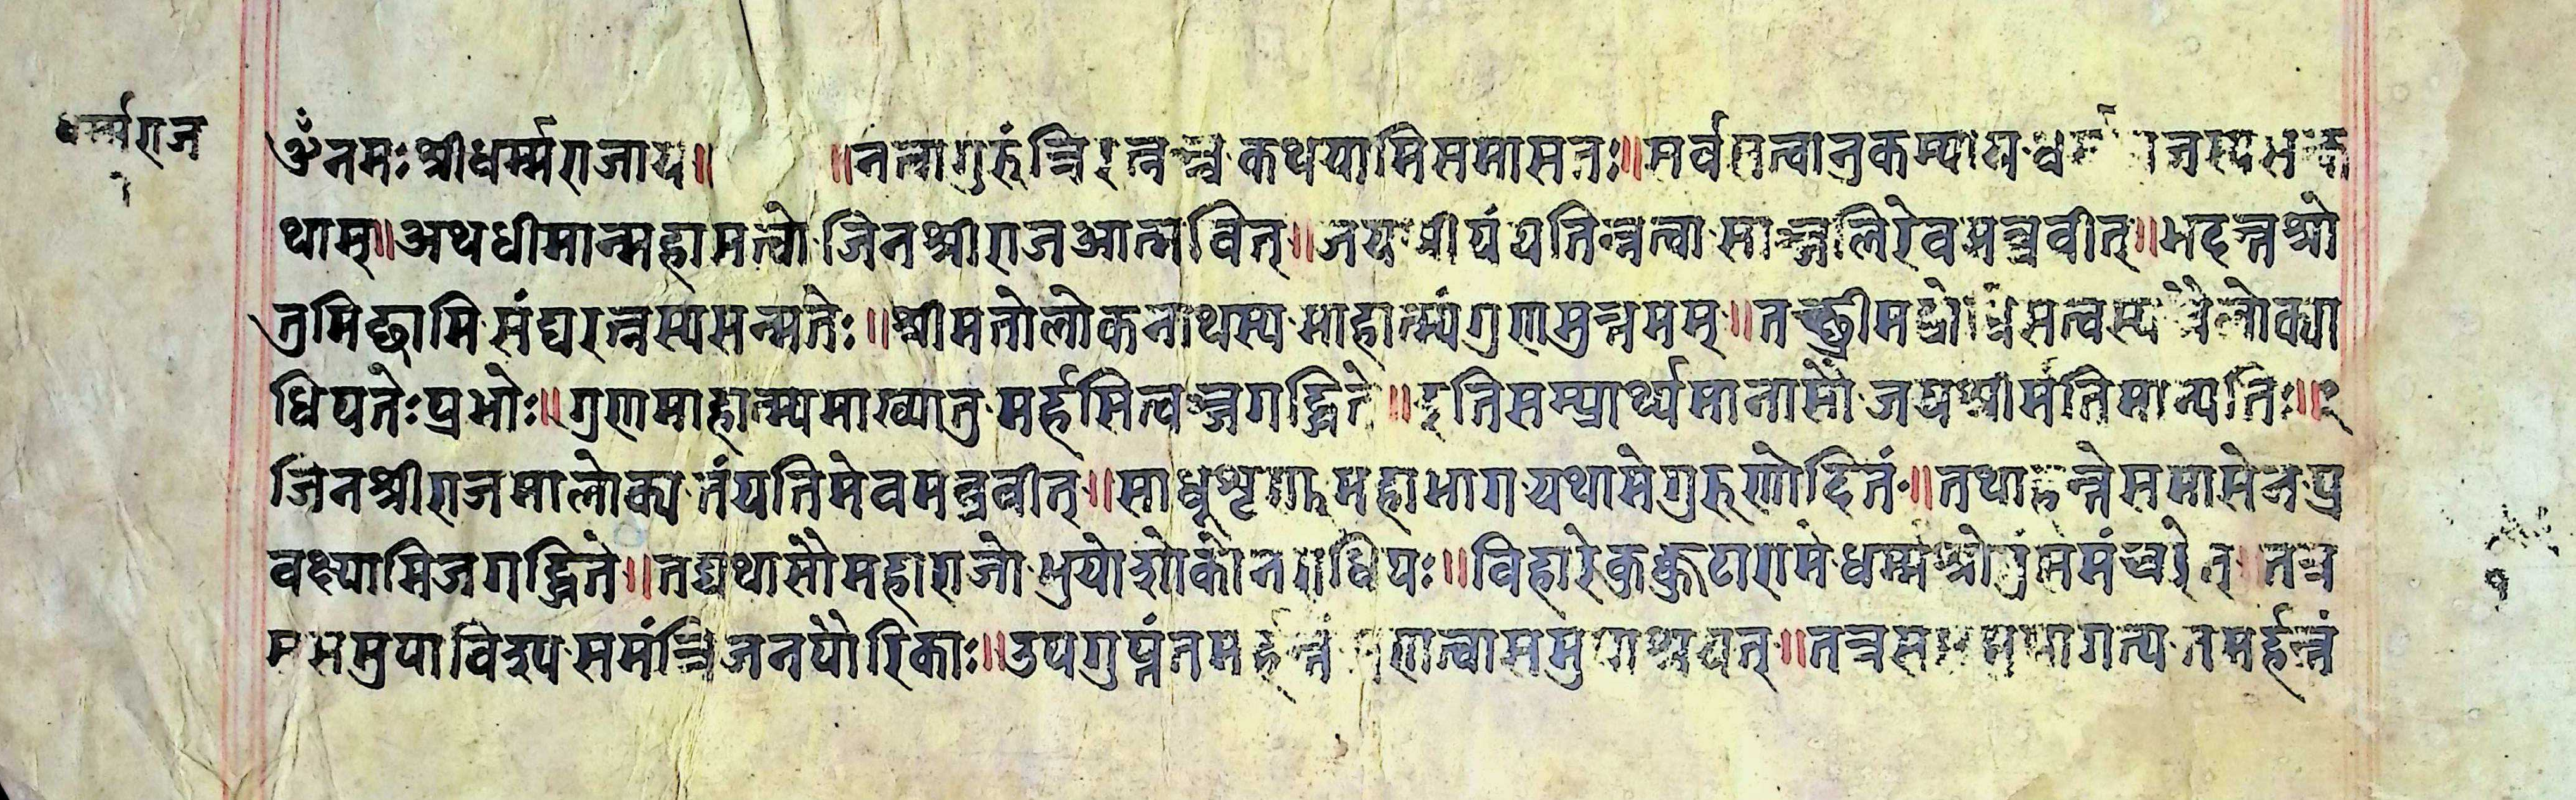 धर्म्मराज
ॐ नमः श्रीधर्म्मराजाय॥ ॥नत्वागुरुंन्त्रिरत्नञ्च कथयामिसमासतः॥सर्वसत्वानुकम्पाय
थाम्॥अथधीमान्महासत्वो जिनश्रीराजआत्मवित्॥जयश्रीयंयतिन्नत्वा साञ्जलिरेवमब्रवीत्॥भदन्तश्रो
तुमिछामि संघरत्नस्यसन्मतेः॥श्रीमतोलोकनाथस्य माहात्म्यंगुणमुत्तमम्॥तच्छ्रीमद्बोधिसत्वस्य त्रैलोक्या
धिपतेःप्रभोः॥गुणमाहात्म्यमाख्यातु मर्हसित्वञ्जगद्धिते॥इतिसम्प्रार्थ्यमानासौ जयश्रीर्मतिमान्यतिः॥
जिनश्रीराजमालोक्य तंयतिमेवमब्रवीत्॥साधुशृणु महाभाग यथामेगुरुणोदितं॥तथाहन्तेसमासेन प्र
वक्ष्यामिजगद्धिते॥तद्यथासौमहाराजो भुयोशोकोनराधिपः॥विहारेकुक्कुटारामे धर्म्मंश्रोतुं तत्र
समुपाविश्य समंन्त्रिजनपौरिकाः॥उपगुप्तंतमर्हन्तं समुपाश्रयत्॥तत्रस तमर्हन्तं
१